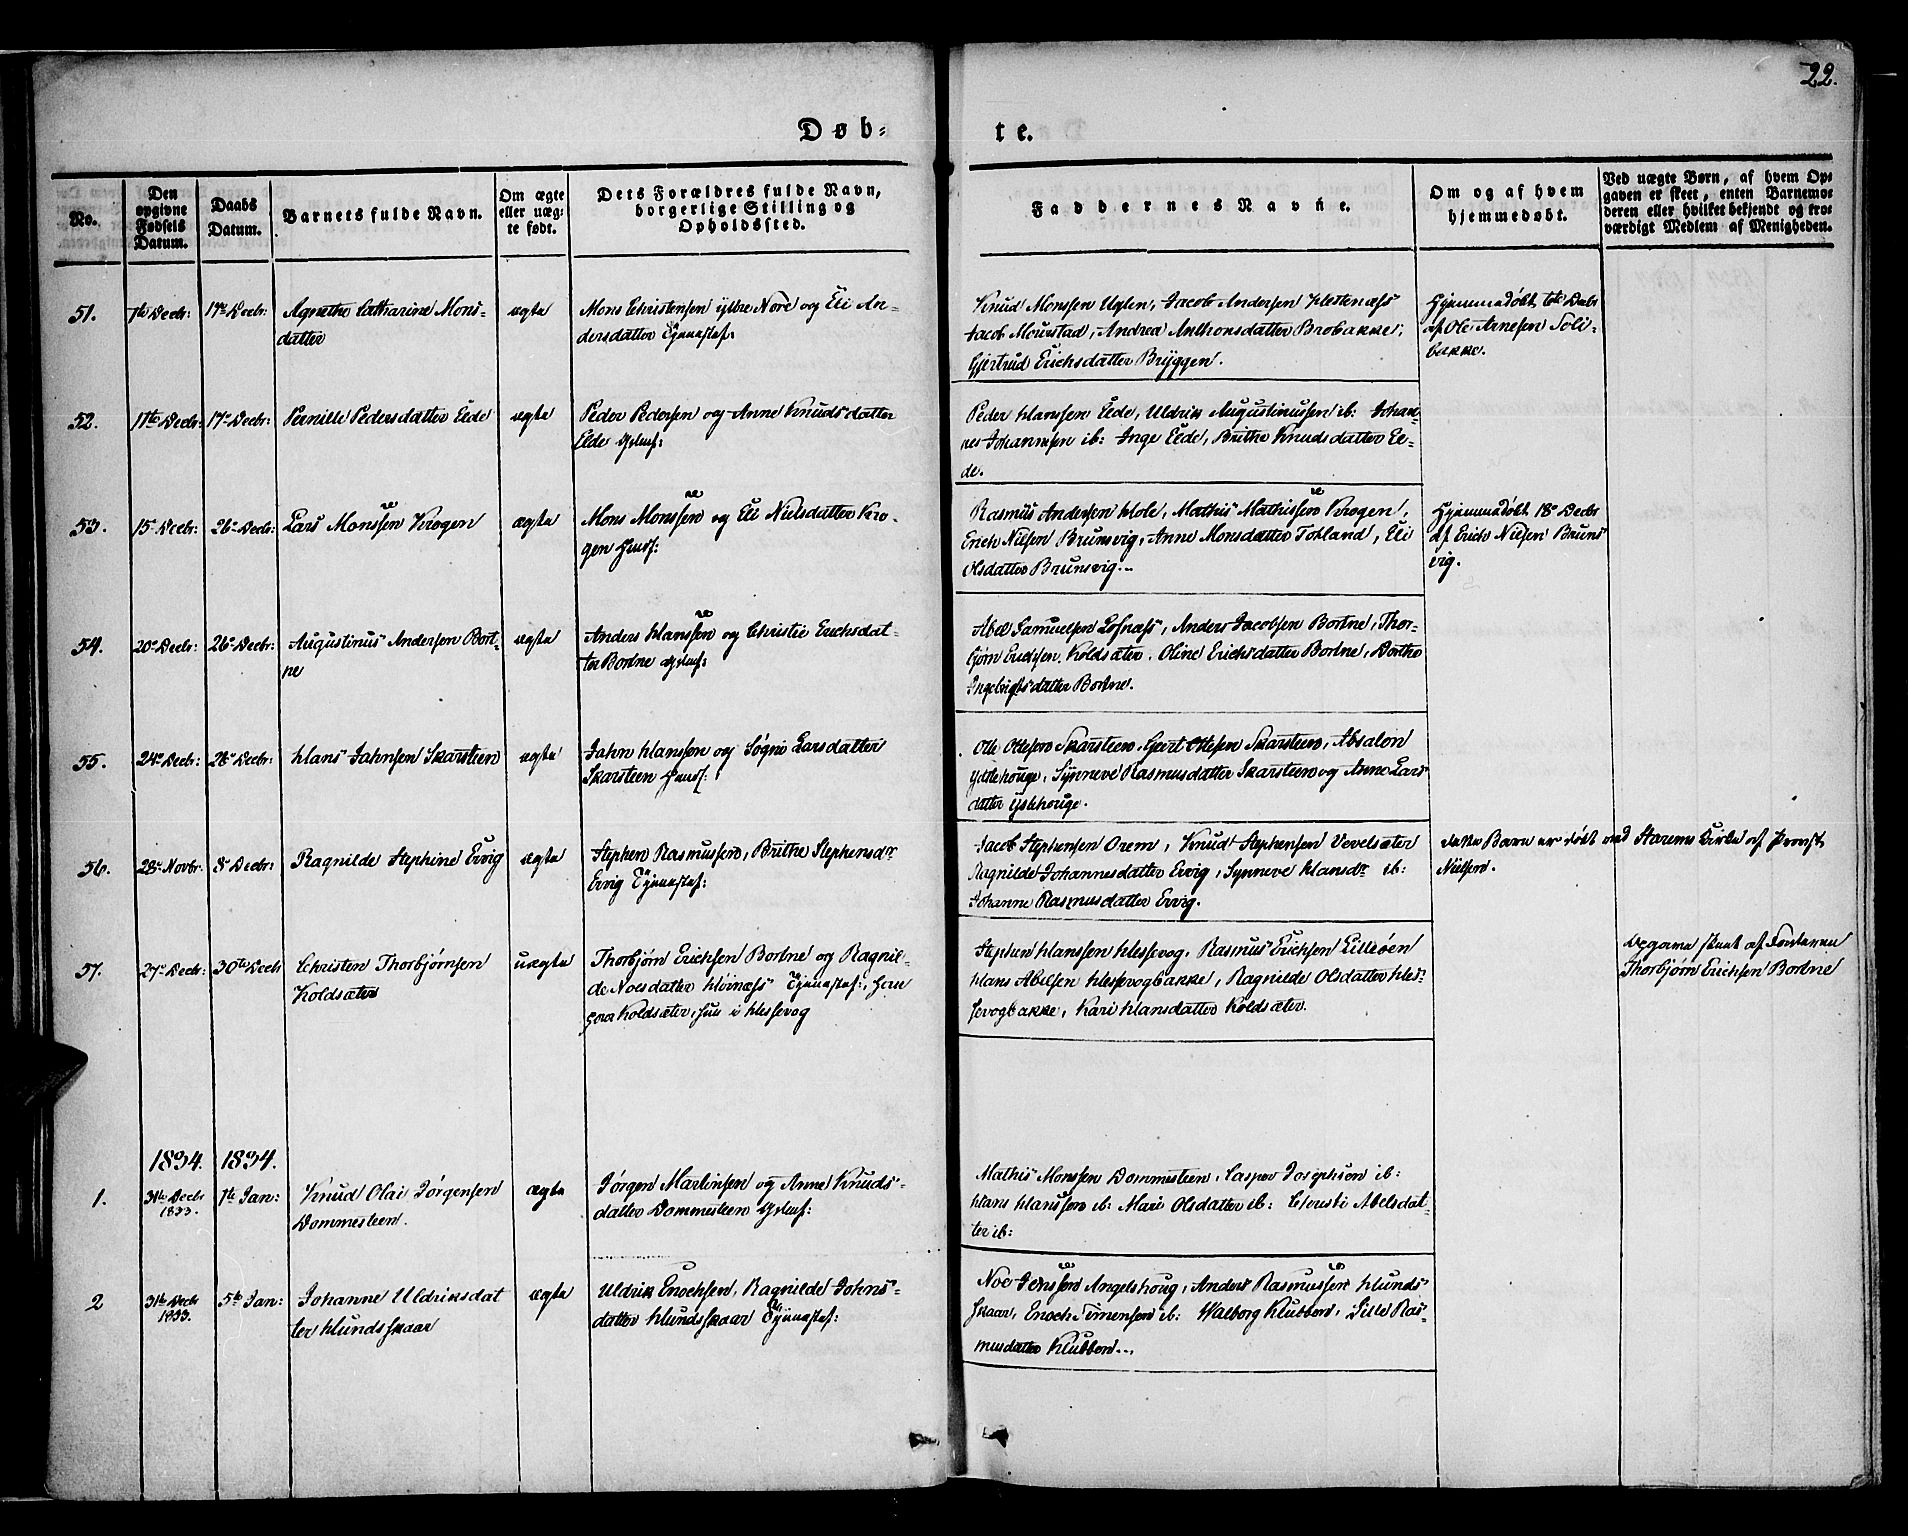 22.
Døb-
te.
No.
Den
opgivne
Fødsels
Datum.
Daabs
Datum.
Barnets fulde Navn.
Om ægte
eller uæg-
te født.
Dets Forældres fulde Navn,
borgerlige Stilling og
Opholdssted.
Faddernes Navne.
Om og af hvem
hjemmedøbt.
Ved uægte Børn, af hvem Op-
gaven er skeet, enten Barnemo-
deren eller hvilket bekjendt og tro-
værdigt Medlem af Menigheden.
51.
1te Decbr:
17de Decbr:
Agnethe Catharine Mons-
datter
ægte
Mons Christensen ÿttre Nore og Eli An-
dersdatter
Knud Monssen Uglen, Jacob Andersen Hestenæss
Jacob Mourstad, Andrea Anthonsdatter Brobakke,
Gjertrud Erichsdatter Brÿggen.
Hjemmedøbt 6te Decbr
af Ole Arnesen Soli-
bakke.
52.
11te Decbr:
17de Decbr:
Pernille Pedersdatter Eede
ægte
Peder Pedersen og Anne Knudsdatter
Eede
Peder Hanssen Eede, Uldrik Augustinussen ib: Johan-
nes Johannesen ib: Inge Eede, Brithe Knudsdatter Ee-
de.
53.
15de Decbr:
26de Decbr:
Lars Monssen Krogen
ægte
Mons Monssen og Eli Nielsdatter Kro-
gen
Rasmus Andersen Hole, Mathis Mathissen Krogen,
Erich Nielsen Brunsvig, Anne Monsdatter Totland, Eli
Olsdatter Brunsvig.
Hjemmedøbt 18de Decbr
af Erich Nielsen Bruns
vig.
54.
20de Decbr:
26de Decbr:
Augustinus Andersen Bort-
ne
ægte
Anders Hanssen og Christie Erichsdat-
ter Bortne
Abel Samuelsen Lofnæss, Anders Jacobsen Bortne, Thor-
bjørn Erichsen Koldsæter, Oline Erichsdatter Bortne, Dorthe
Ingebrigtsdatter Bortne.
55.
24de Decbr:
28de Decbr:
Hans Jahnsen Skarsteen
ægte
Jahn Hanssen og Søgni Larsdatter
Skarsteen
Otte Ottesen Skarsteen, Geert Ottesen Skarsteen, Absalon
Ÿttehouge, Synneve Rasmusdatter Skarsteen og Anne Lars
datter Ÿttehouge.
56.
28de Novbr:
8de Decbr:
Ragnilde Stephine Ervig
ægte
Stephen Rasmussen, Brithe Stephensdr
Ervig
Jacob Stephensen Orem, Knud Stephensen Vevelsæter
Ragnilde Johannesdatter Ervig, Synneve Hansdr ib:
Johanne Rasmusdatter Ervig.
dette Barn er døbt ved Starems Kirke af Provst
Nielsen.
57.
27de Decbr:
30te Decbr
Christen Thorbjørnsen
Koldsæter
uægte
Thorbjørn Erichsen Bortne og Ragnil-
de Noesdatter Hvinæss
Koldsæter, hun i Hessevog
Stephen Hanssen Hessevog, Rasmus Erichsen Lilleøen
Hans Abelsen Hessevogbakke, Ragnilde Olsdatter Hes-
sevogbakke, Kari Hansdatter Koldsæter.
Opgaven skeet af Faderen
Thorbjørn Erichsen Bortne
1834. 1834.
1.
31te Decbr
1833.
1te Jan:
Knud Olai Jørgensen
Dommesteen.
ægte
Jørgen Martinsen og Anne Knuds-
datter Dommesteen
Mathis Monssen Dommesteen, Casper Josephsen ib:
Hans Hanssen ib: Mari Olsdatter ib: Christi Abelsdat-
ter ib:
2
31te Decbr
1833.
5te Jan:
Johanne Uldriksdat
ter Hundsskaar
ægte
Uldrik Enochsen, Ragnilde Johns-
datter Hundsskaar
Noe Jenssen Angelshoug, Anders Rasmussen Hunds-
skaar, Enoch Simensen ib: Walborg Klubben, Sille Ras-
musdatter Klubben.